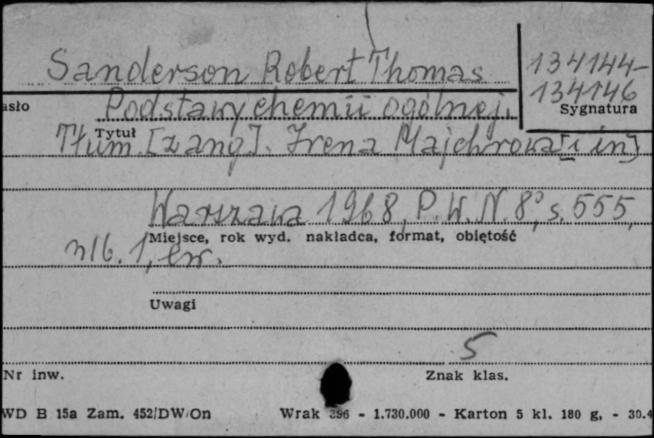 Sanderson Robert Thomas
134144-
134146
Sygnatura
asło
Podstawy chemii ogólnej.
Tytuł
Tłum. [z ang]. Irena Majchrowa [i in]
Warszawa 1968, P.W.N. 8°, s. 555,
Miejsce, rok wyd. nakładca, format, objętość
nlb. 1, err.
Uwagi
5
Nr inw.
Znak klas.
WD B 15a Zam. 452/DW/On
Wrak 396 - 1.730.000 - Karton 5 kl. 180 g, - 30.4